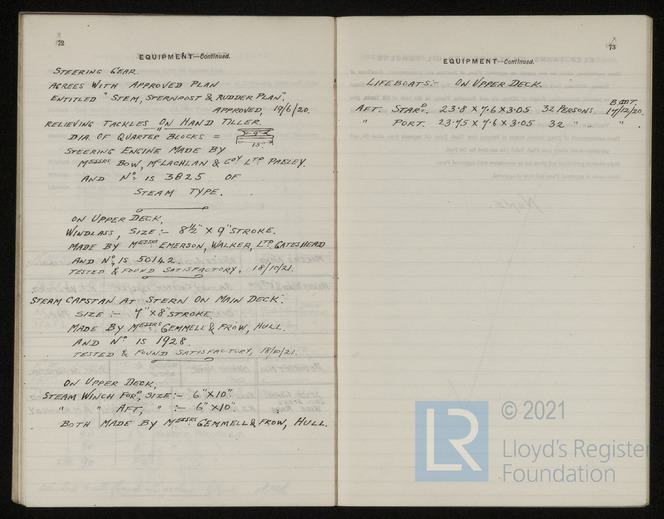 72
EQUIPMENT—Continued.
STEERING GEAR
AGREES WITH APPROVED PLAN
ENTITLED "STEM, STERNPOST & RUDDER PLAN".
APPROVED, 19/6/20.
RELIEVING TACKLES ON HAND TILLER.
DIA. OF QUARTER BLOCKS =
15"
STEERING ENGINE MADE BY
MESSRS BOW, McLACHLAN & COY LTD PAISLEY.
AND No. IS 3825 OF
STEAM TYPE.
ON UPPER DECK,
WINDLASS, SIZE :- 8½" X 9" STROKE.
MADE BY MESSRS EMERSON, WALKER, LTD GATESHEAD
AND No. IS 50142.
TESTED & FOUND SATISFACTORY, 18/10/21.
STEAM CAPSTAN AT STERN ON MAIN DECK.
SIZE :- 7" X 8" STROKE.
MADE BY MESSRS GEMMELL & FROW, HULL.
AND No IS 1928.
TESTED & FOUND SATISFACTORY, 18/10/21.
ON UPPER DECK,
STEAM WINCH FORD, SIZE :- 6" X 10".
" " AFT, " :- 6" X 10".
BOTH MADE BY MESSRS GEMMELL & FROW, HULL.
73
EQUIPMENT—Continued.
LIFEBOATS :- ON UPPER DECK.
AFT. STARD. 23.8 X 7.6 X 3.05 32 PERSONS. 17/12/20.
" PORT. 23.75 X 7.6 X 3.05 32 " "
© 2021
LR
Lloyd's Register
Foundation